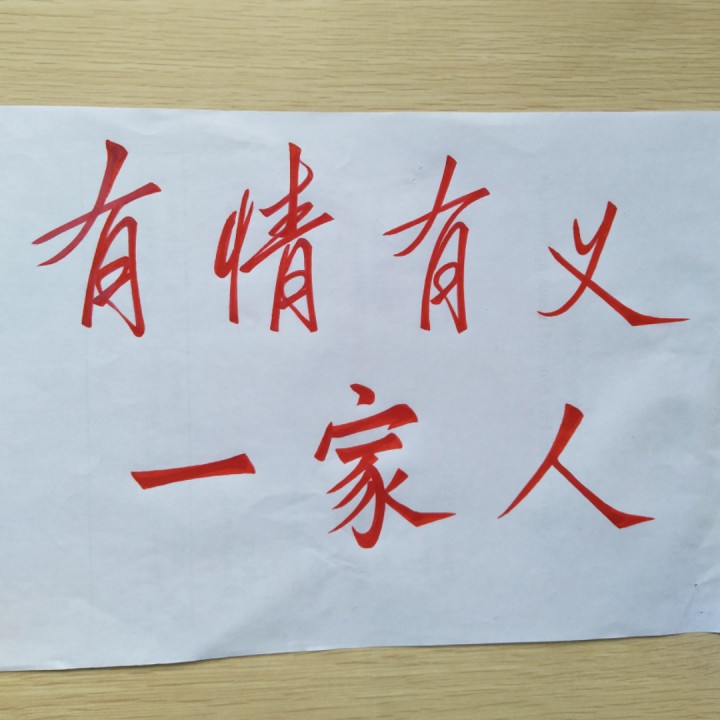 有情有义
一家人